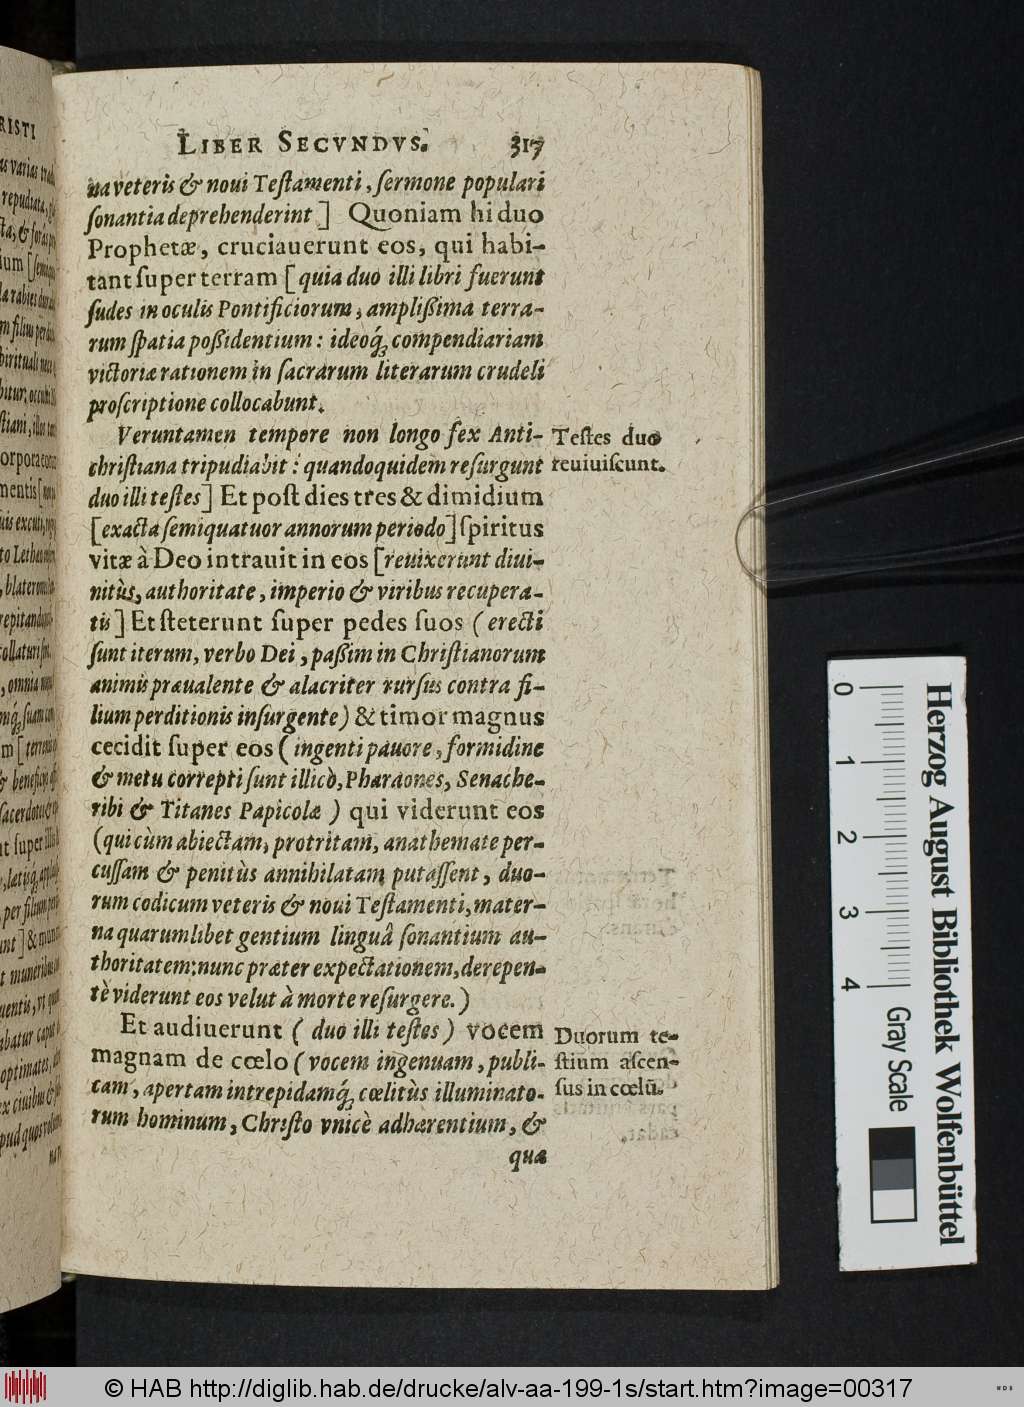 LIBER SECVNDVS. 317
na veteris & noui Teſtamenti, ſermone populari
ſonantia deprehenderint] Quoniam hi duo
Prophetæ, cruciauerunt eos, qui habi-
tant ſuper terram [quia duo illi libri fuerunt
ſudes in oculis Pontificiorum, ampliſſima terra-
rum ſpatia poſſidentium: ideoq́; compendiariam
victoriæ rationem in ſacrarum literarum crudeli
proſcriptione collocabunt.
Veruntamen tempore non longo fex Anti-
chriſtiana tripudiabit: quandoquidem reſurgunt
duo illi teſtes] Et poſt dies tres & dimidium
[exacta ſemiquatuor annorum periodo] ſpiritus
vitæ à Deo intrauit in eos [reuixerunt diui-
nitùs, authoritate, imperio & viribus recupera-
tis] Et ſteterunt ſuper pedes ſuos (erecti
ſunt iterum, verbo Dei, paſſim in Chriſtianorum
animis præualente & alacriter rurſus contra fi-
lium perditionis inſurgente) & timor magnus
cecidit ſuper eos (ingenti pauore, formidine
& metu correpti ſunt illicò, Pharaones, Senache-
ribi & Titanes Papicolæ) qui viderunt eos
(qui cùm abiectam, protritam, anathemate per-
cuſſam & penitùs annihilatam putaſſent, duo-
rum codicum veteris & noui Teſtamenti, mater-
na quarumlibet gentium linguâ ſonantium au-
thoritatem: nunc præter expectationem, derepen-
tè viderunt eos velut à morte reſurgere.)
Et audiuerunt (duo illi teſtes) vocem
magnam de cœlo (vocem ingenuam, publi-
cam, apertam intrepidamq́; cœlitùs illuminato-
rum hominum, Chriſto vnicè adhærentium, &
quæ
Teſtes duo
reuiuiſcunt.
Duorum te-
ſtium aſcen-
ſus in cœlū.
0 1 2 3 4
Gray Scale
Herzog August Bibliothek Wolfenbüttel
© HAB http://diglib.hab.de/drucke/alv-aa-199-1s/start.htm?image=00317